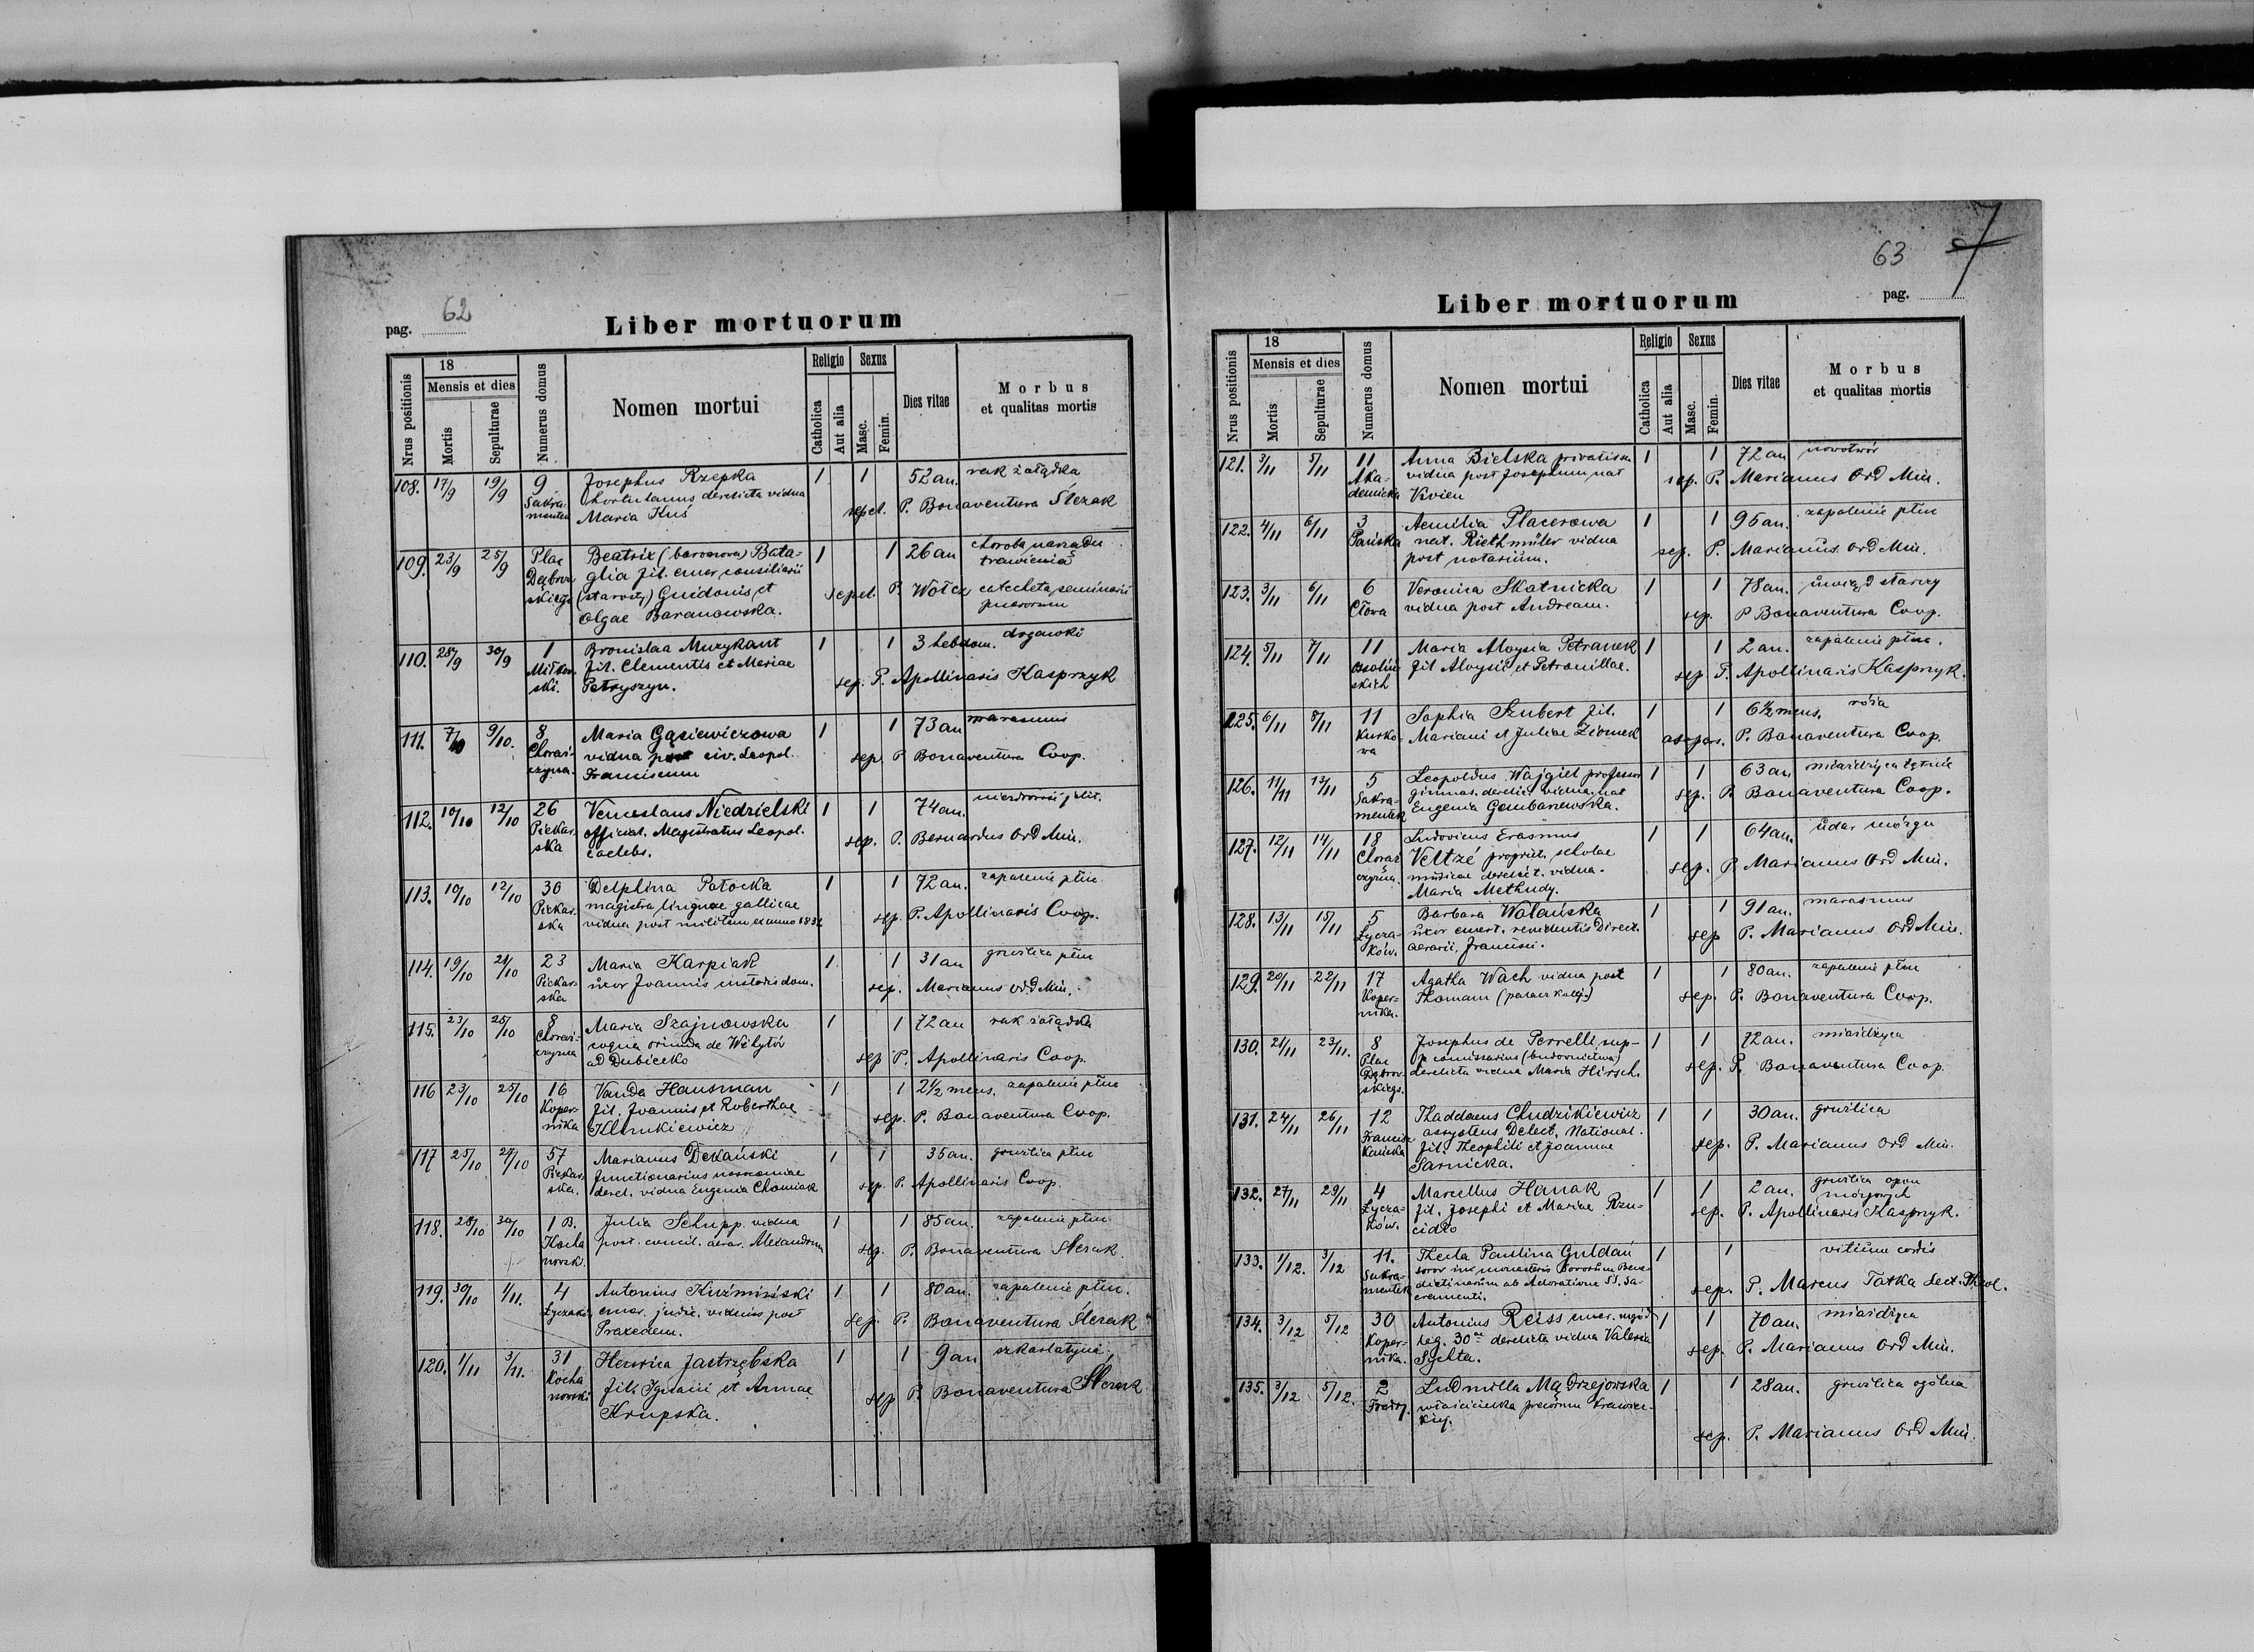 62
pag.
Liber mortuorum
Nrus positionis
18
Mensis et dies
Mortis
Sepulturae
Numerus domus
Nomen mortui
Religio
Catholica
Aut alia
Sexus
Masc.
Femin.
Dies vitae
Morbus
et qualitas mortis
108. 17/9 19/9 9 Josephus Rzepka 1 1 52 an. rak żołądka
Sakra- hortulanus derelicta vidua
mentek Maria Kuś sepel. P. Bonaventura Ślezak
109. 23/9 25/9 Plac Beatrix (baronowa) Bata- 1 1 26 an choroba narządu
Dąbrow glia fil. emer. consiliarii trawienia
skiego (starosty) Guidonis et sepel. P. Wołcz catecheta seminarii
Olgae Baranowska.
110. 28/9 30/9 1 Bronislaa Muzykant 1 1 3 hebdom. drgawki
Miłkow fil. Clementis et Mariae
ski. Petryszyn. sep. P. Apollinaris Kasprzyk
111. 7/10 9/10. 8 Maria Gąsiewiczowa 1 1 73 an marasmus
Chorąż- vidua post civ. Leopol.
czyzna Franciscum sep. P Bonaventura Coop.
112. 10/10 12/10 26 Venceslaus Niedzielski 1 1 74 an.
Piekar- official. Magistratus Leopol.
ska caelebs. sep. P. Bernardus Ord Min.
113. 10/10 12/10 30 Delphina Potocka 1 1 72 an. zapalenie płuc
Piekar- magistra linguae gallicae
ska vidua post militem ex anno 1831 sep. P. Apollinaris Coop.
114. 19/10 21/10 23 Maria Karpiak 1 1 31 an gruźlica płuc
Piekar- uxor Joannis custodis dom.
ska sep. Marianus Ord Min.
115. 23/10 25/10 8 Maria Szajnowska 1 1 72 an rak żołądka
Chorąż- coqua oriunda de Wybytów
czyzna ad Dubiecko sep P. Apollinaris Coop.
116 23/10 25/10 16 Vanda Hausman 1 1 2 1/2 mens. zapalenie płuc
Koper- fil. Joannis et Roberthae
nika Klimkiewicz sep. P. Bonaventura Coop.
117 25/10 27/10 57 Marianus Dekański 1 1 35 an. gruźlica płuc
Piekar- functionarius nosocomiae
ska. derel. vidua Eugenia Chomiak sep. P. Apollinaris Coop.
118. 28/10 30/10 1 B. Julia Schupp. vidua 1 1 85 an. zapalenie płuc
Kocha post. concil. aerar. Alexandrum
nowsk. sep. P. Bonaventura Ślezak.
119. 30/10 1/11. 4 Antonius Kuźmiński 1 1 80 an. zapalenie płuc.
Łyczaków emer. judic. viduus post
Praxedem. sep. P. Bonaventura Ślezak
120. 1/11 3/11. 31 Henrica Jastrzębska 1 1 9 an szkarlatyna
Kocha fil. Ignatii et Annae
nowski Krupska. sep P. Bonaventura Ślezak
63
pag.
Liber mortuorum
Nrus positionis
18
Mensis et dies
Mortis
Sepulturae
Numerus domus
Nomen mortui
Religio
Catholica
Aut alia
Sexus
Masc.
Femin.
Dies vitae
Morbus
et qualitas mortis
121. 3/11 5/11 11 Anna Bielska privatista 1 1 72 an nowotwór
Aka- vidua post Josephum nat sep. P. Marianus Ord Min.
demicka
122. 4/11 6/11 3 Aemilia Placerowa 1 1 95 an. zapalenie płuc
Pańska nat. Riethmüller vidua
post notarium. sep. P. Marianus. Ord Min.
123. 3/11 6/11 6 Veronica Skotnicka 1 1 78 an. uwiąd starczy
Cłowa vidua post Andream. sep. P Bonaventura Coop.
124. 5/11 7/11 11 Maria Aloysia Petranek 1 1 2 an. zapalenie płuc.
Ossoliń- fil Aloysii et Petronillae.
skich sep. P. Apollinaris Kasprzyk.
125. 6/11 8/11 11 Sophia Szubert fil. 1 1 6 1/2 mens. róża
Kurko- Mariani et Juliae Ziomek
wa P. Bonaventura Coop.
126. 11/11 13/11 5 Leopoldus Wajgiel professor 1 1 63 an. miażdżyca tętnic
Sakra- gimnas. derelic. vidua nat
mentek Eugenia Gembarzewska. sep. P. Bonaventura Coop.
127. 12/11 14/11 18 Ludovicus Erasmus 1 1 64 an. udar mózgu
Chorąż Veltzé propriet. scholae
czyzna. musicae derelict. vidua. sep. P. Marianus Ord Min.
Maria Methudy.
128. 13/11 15/11 5 Barbara Walańska 1 1 91 an. marasmus
Łycza- uxor emert. revidentis Direct.
ków. aerarii Francisci. sep P. Marianus Ord Min.
129. 20/11 22/11 17 Agatha Wach vidua post 1 1 80 an. zapalenie płuc
Koper- Thomam (palacz kolej.)
nika. sep. P. Bonaventura Coop.
130. 21/11 23/11. 8 Josephus de Perrelli sup- 1 1 72 an. miażdżyca
Plac comissarius (budownictwa)
Dąbrow- derelicta vidua Maria Hirsch. sep. P. Bonaventura Coop.
skiego.
131. 24/11 26/11 12 Thaddaeus Chudzikiewicz 1 1 30 an. gruźlica
Francisz assystens Delect. National.
kańska fil. Theophili et Joannae sep. P. Marianus Ord Min.
Sarnicka.
132. 27/11 29/11 4 Marcellus Hanak 1 1 2 an. gruźlica opon
Łycza- fil. Josephi et Mariae Rzu- mózgowych
ków. cidło sep. P. Apollinaris Kasprzyk.
133. 1/12. 3/12 11. Thecla Paulina Guldań 1 1 vitium cordis
Sakra- soror in monasterio Sororum Bene-
mentek dictinarum ab Adoratione SS. Sa-
cramenti. sep. P. Marcus Tatka Lect. Theol.
134. 3/12 5/12 30 Antonius Reiss emer. 1 1 70 an. miażdżyca
Koper- leg. 30ae derelicta vidua Valeria
nika. Sychta. sep. P. Marianus Ord Min.
135. 3/12 5/12. 2 Ludmilla Mądrzejowska 1 1 28 an. gruźlica ogólna
Fredry. właścicielka krawiec-
kiej. sep. P. Marianus Ord Min.